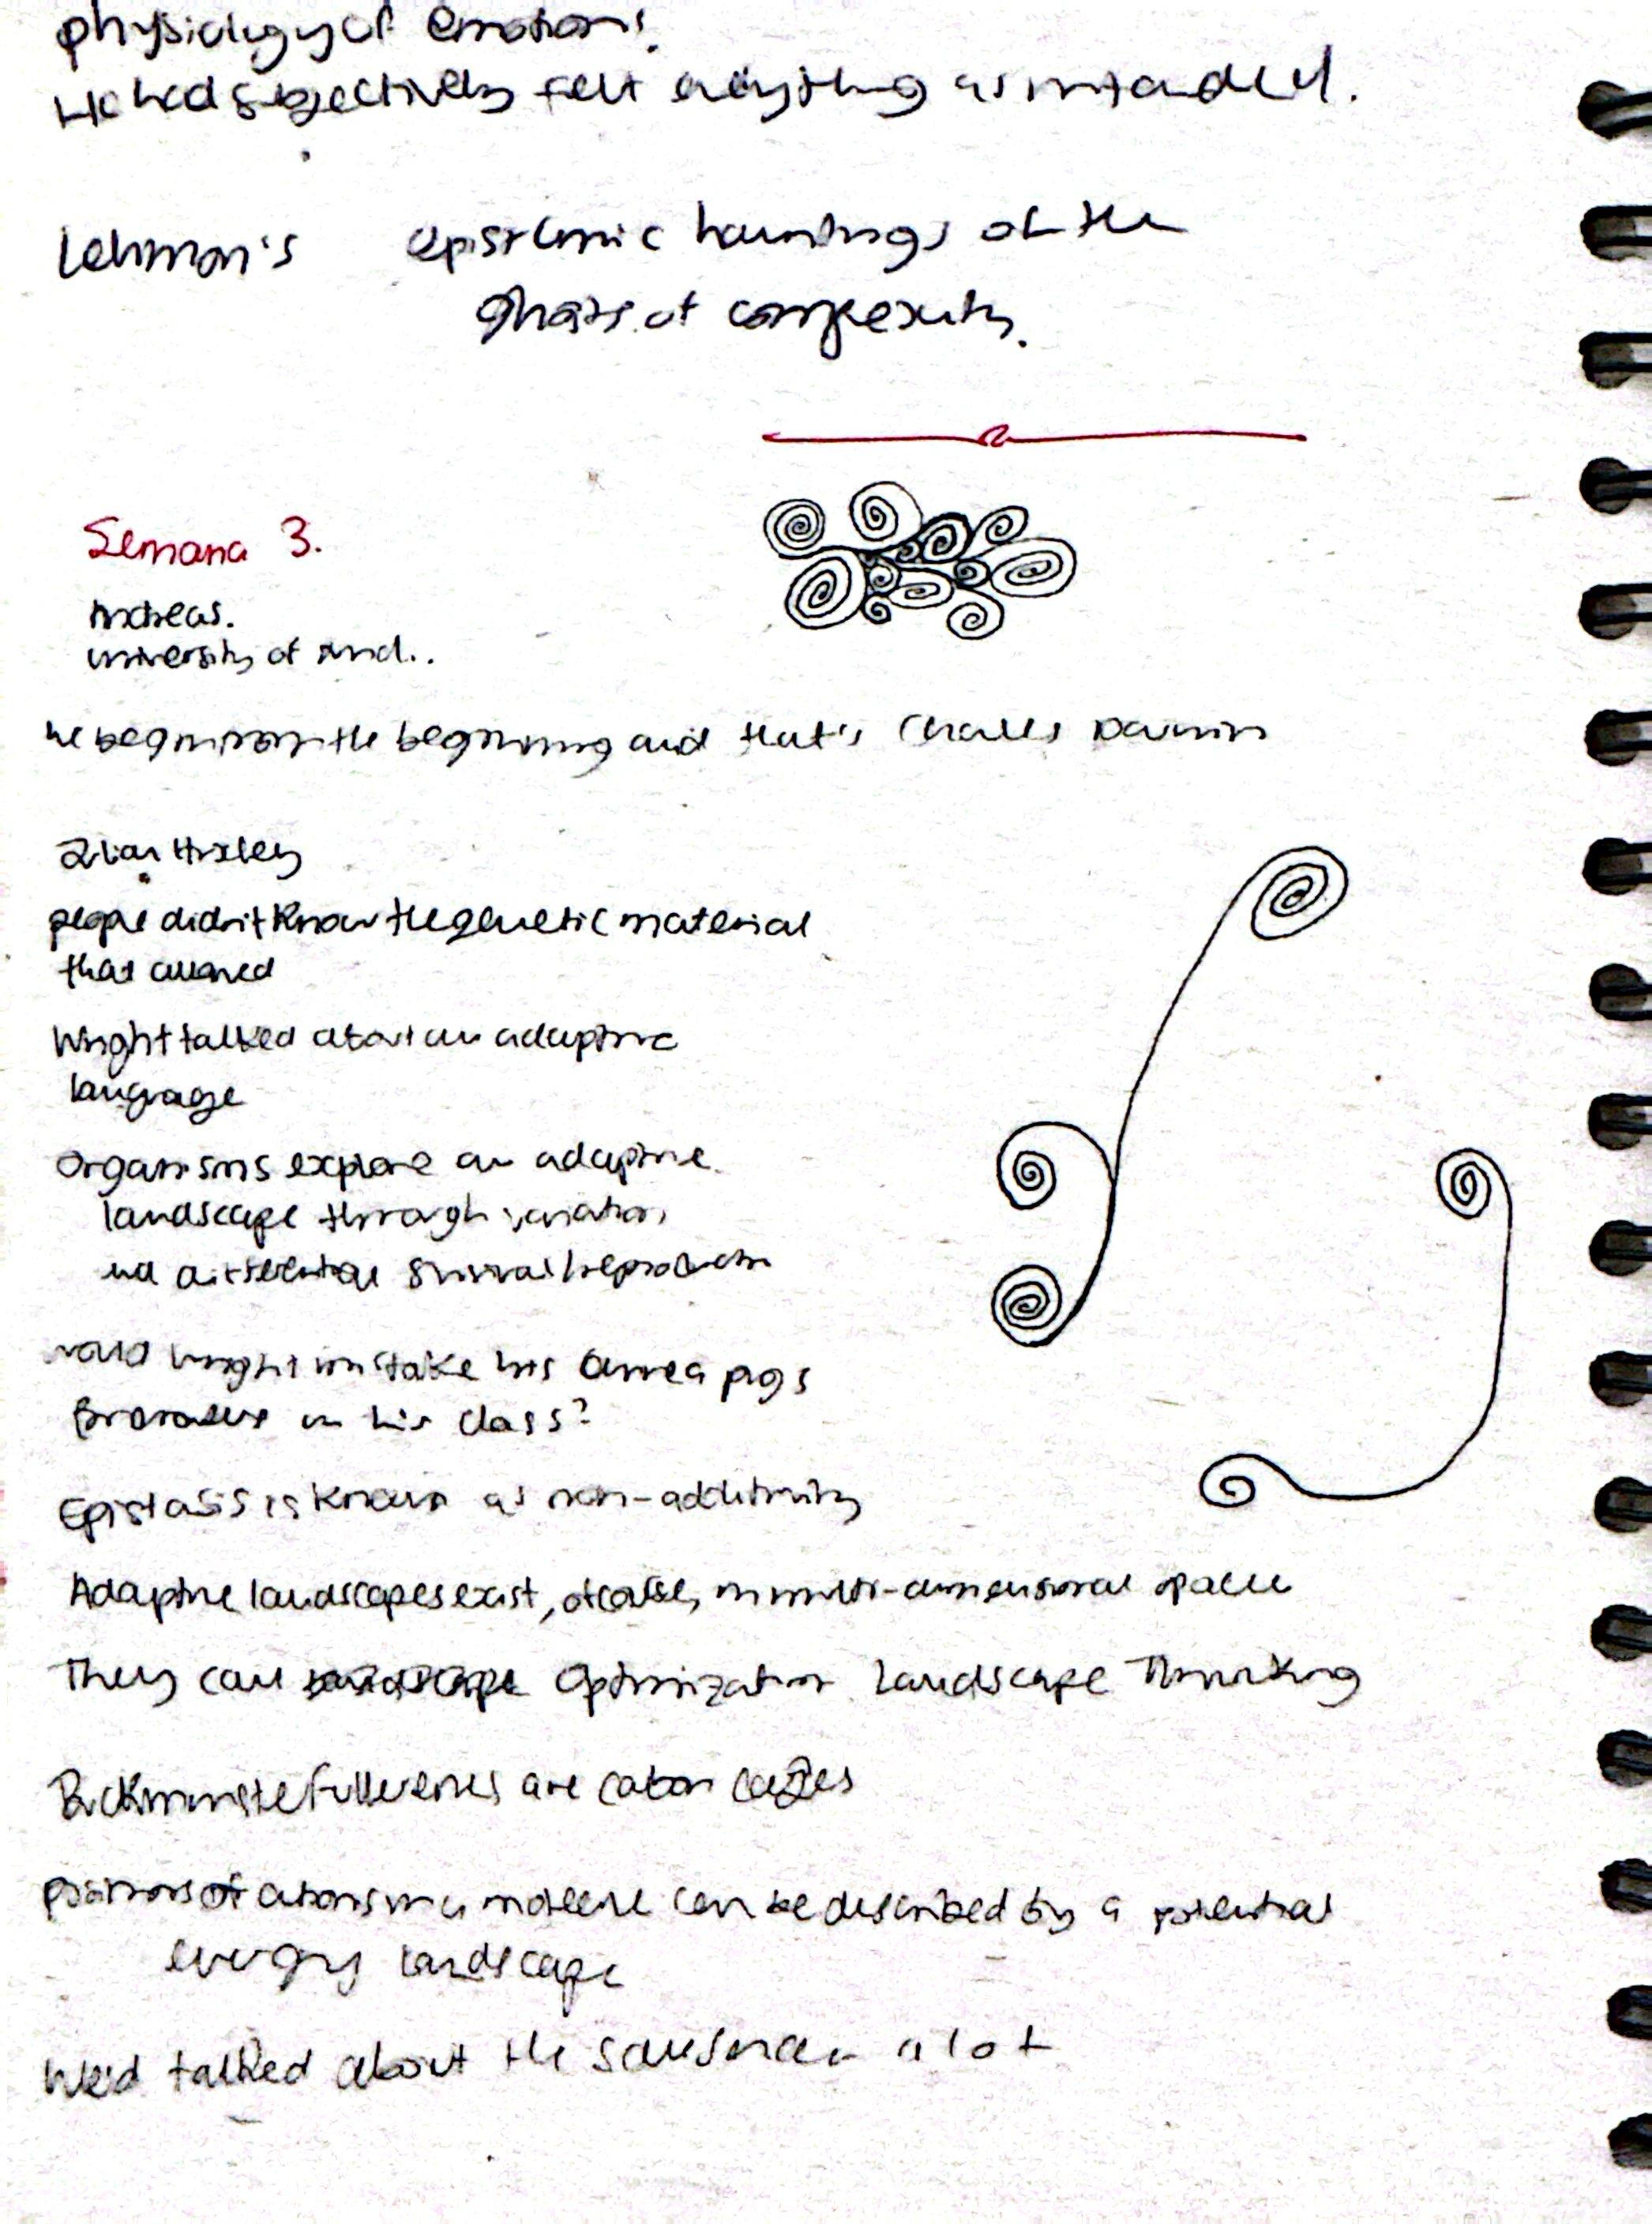 physiology of emotions.
He had subjectively felt everything as intended.
Lehman's epistemic hauntings of the
ghosts of complexity.
Semana 3.
Andreas.
university of
we begin from the beginning and that's Charles Darwin
Huxley
people didn't know the genetic material
that allowed
Wright talked about an adaptive
language
Organisms explore an adaptive
landscape through variation
and differential survival/reproduction
would Wright mistake his Guinea pigs
in his class?
Epistasis is known as non-additivity
Adaptive landscapes exist, of course, in multi-dimensional space
They call landscape Optimization Landscape Thinking
Buckminsterfullerenes are carbon cages
positions of atoms in a molecule can be described by a potential
energy landscape
We'd talked about the a lot